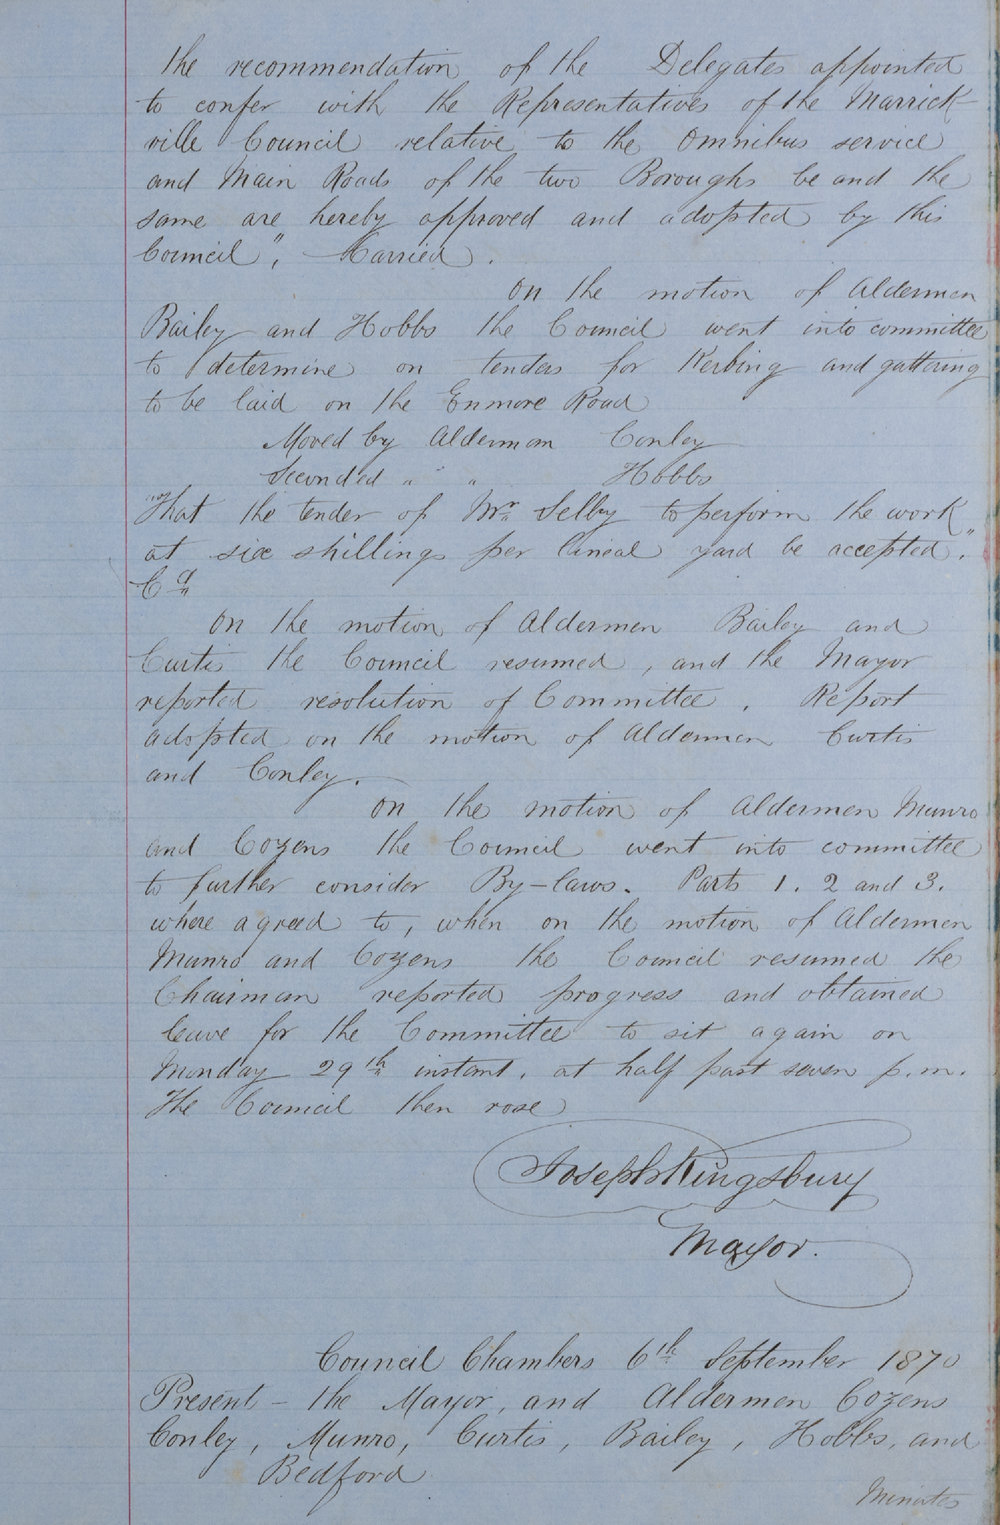 the recommendation of the Delegates appointed
to confer with the Representatives of the Marrick
ville Council relative to the Omnibus service
and Main Roads of the two Boroughs be and the
same are hereby approved and adopted by this
Council", Carried.
On the motion of Aldermen
Bailey and Hobbs the Council went into committee
to determine on tenders for Kerbing and guttering
to be laid on the Enmore Road
Moved by Alderman Conley
Seconded " " Hobbs
"That the tender of Mr Selby to perform the work
at six shillings per lineal yard be accepted."
Cd
On the motion of Aldermen Bailey and
Curtis the Council resumed, and the Mayor
reported resolution of Committee. Report
adopted on the motion of Aldermen Curtis
and Conley.
On the motion of Aldermen Munro
and Cozens the Council went into committee
to further consider By-laws. Parts 1. 2 and 3.
where agreed to, when on the motion of Aldermen
Munro and Cozens the Council resumed the
Chairman reported progress and obtained
leave for the Committee to sit again on
Monday 29th instant. at half past seven p.m.
The Council then rose
Joseph Kingsbury
Mayor.
Council Chambers 6th September 1870
Present - the Mayor, and Aldermen Cozens
Conley, Munro, Curtis, Bailey, Hobbs, and
Bedford
Minutes